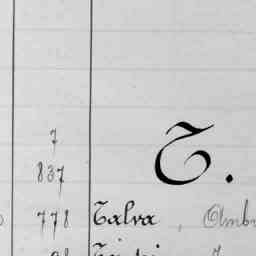 7
T.
837
778 Talva, Ambr